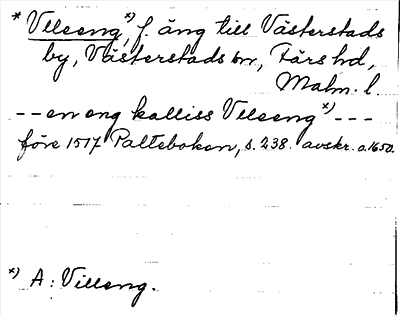 * Vlleeng, x) f. äng till Västerstads
by, Västerstads sn, Färs hd,
Malm. l.
-- en eng kalliss Vlleeng x) ---
före 1517 Palteboken, s. 238. avskr. o. 1650.
x) A: Villeng.